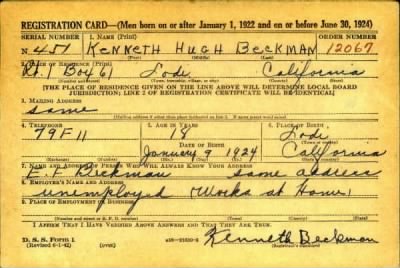 REGISTRATION CARD—(Men born on or after January 1, 1922 and on or before June 30, 1924)
SERIAL NUMBER 1. NAME (Print) ORDER NUMBER
N 451 KENNETH HUGH BECKMAN 12067
(First) (Middle) (Last)
2. PLACE OF RESIDENCE (Print)
Rt. 1 Box 61 Lodi California
(Number and street) (Town, township, village, or city) (County) (State)
[THE PLACE OF RESIDENCE GIVEN ON THE LINE ABOVE WILL DETERMINE LOCAL BOARD
JURISDICTION; LINE 2 OF REGISTRATION CERTIFICATE WILL BE IDENTICAL]
3. MAILING ADDRESS
same
4. TELEPHONE 5. AGE IN YEARS 6. PLACE OF BIRTH
79F11 18 Lodi
DATE OF BIRTH
January 9 1924 California
(Exchange) (Number) (Mo.) (Day) (Yr.) (State or country)
7. NAME AND ADDRESS OF PERSON WHO WILL ALWAYS KNOW YOUR ADDRESS
E. F. Beckman same address
8. EMPLOYER'S NAME AND ADDRESS
unemployed (Works at Home)
9. PLACE OF EMPLOYMENT OR BUSINESS
(Number and street or R. F. D. number) (Town) (County) (State)
I AFFIRM THAT I HAVE VERIFIED ABOVE ANSWERS AND THAT THEY ARE TRUE.
D. S. S. Form 1
(Revised 6-1-42) (over) Kenneth Beckman